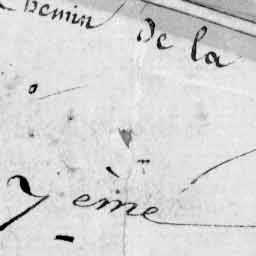 chemin de la
7 ème